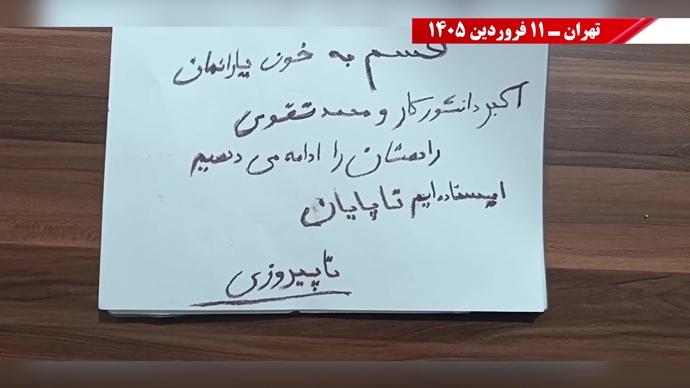 تهران ــ ۱۱ فروردین ۱۴۰۵
قسم به خون یارانمان
اکبر دانشورکار و محمد تقوی
راهتان را ادامه می دهیم
ایستاده ایم تا پایان
تا پیروزی